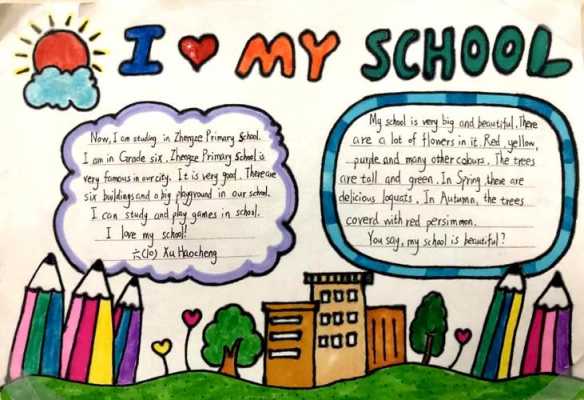 I ❤ MY SCHOOL
Now, I am studing in Zhengze Primary School.
I am in Grade six. Zhengze Primary School is
very famous in our city. It is very good. There are
six buildings and a big playground in our school.
I can study and play games in school.
I love my school!
六(10) Xu Haocheng
My school is very big and beautiful. There
are a lot of flowers in it. Red, yellow,
purple and many other colours. The trees
are tall and green. In Spring, these are
delicious loquats. In Autumn, the trees
coverd with red persimmon.
You say, my school is beautiful?